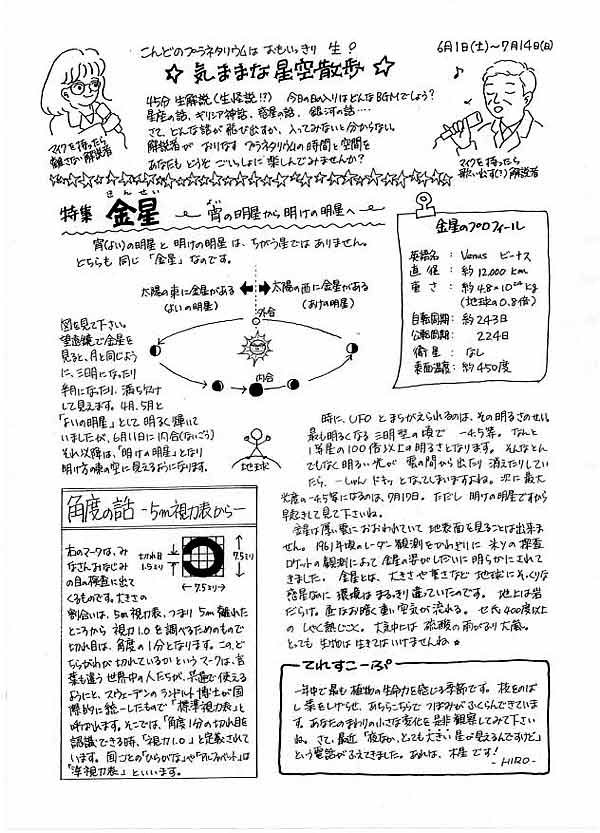 こんどのプラネタリウムは おもいっきり 生!
6月1日(土)~7月14日(日)
☆ 気ままな星空散歩 ☆
45分 生解説(生怪説!?) 今日の日の入りはどんなBGMでしょう?
星座の話、ギリシア神話、惑星の話、銀河の話…
さて、どんな話が飛び出すか、入ってみないと分からない。
解説者が おりなす プラネタリウムの時間と空間を
あなたも どうぞ ごいっしょに 楽しんでみませんか?
マイクを持ったら
離さない解説者
マイクを持ったら
歌い出す(?)解説者
きんせい
特集 金星 ~宵の明星から明けの明星へ~
宵(よい)の明星と明けの明星は、ちがう星ではありません。
どちらも同じ「金星」なのです。
太陽の東に金星がある
(よいの明星)
太陽の西に金星がある
(あけの明星)
外合
内合
地球
図を見て下さい。
望遠鏡で金星を
見ると、月と同じよう
に、三日月になったり
半月になったり、満ち欠け
して見えます。4月、5月と
「よいの明星」として明るく輝いて
いましたが、6月11日に内合(ないごう)
それ以降は、「明けの明星」となり
明け方の東の空に見えるようになります。
金星のプロフィール
英語名 : Venus ビーナス
直径 : 約12,000km
重さ : 約4.8×10²⁴kg
(地球の0.8倍)
自転周期 : 約243日
公転周期 : 224日
衛星 : なし
表面温度 : 約450度
時に、UFOとまちがえられるのは、その明るさのせい。
最も明るくなる三日月型の頃で -4.5等。なんと
1等星の100倍以上の明るさとなります。そんなとん
でもなく明るい光が雲の間から出たり消えたりしてい
たら、一しゅんドキッとなってしまいますよね。次に最大
光度の-4.5等になるのは、7月17日。ただし明けの明星ですから
早起きして見て下さいね。
金星は厚い雲におおわれていて地表面を見ることは出来ま
せん。1961年頃のレーダー観測をかわきりに米ソの探査
ロケットの観測によって金星の姿がしだいに明らかにされて
きました。金星とは、大きさや重さなど地球にそっくりな
惑星なのに環境はまるっきり違っていたのです。地上は岩
だらけ。重なお暗く重い空気が流れる。セ氏400度以上
のしゃく熱じごく。大気中には硫酸の雨がふり大嵐。
とっても生物は生きてはいけませんね☆
角度の話 -5m視力表から-
右のマークは、み
なさんおなじみ
の目の検査に出て
くるものです。大きさの
割合いは、5m視力表、つまり5m離れた
ところから視力1.0を調べるためのもので
切れ目は、角度の1分となります。この、ど
ちらがわが切れているかというマークは、言
葉も違う世界中の人たちが、共通で使える
ようにと、スウェーデンのランドルト博士が国
際的に統一したもので「標準視力表」と
呼ばれます。そこでは、「角度1分の切れ目を
認識できる時、「視力1.0」と定義されて
います。国ごとの「ひらがな」や「アルファベット」は
「準視力表」といいます。
切れ目
1.5ミリ
7.5ミリ
7.5ミリ
てれすこーぷ
一年中で最も植物の生命力を感じる季節です。枝をのば
し葉をしげらせ、あちらこちらでつぼみがふくらんできていま
す。あなたのまわりの小さな変化を是非観察してみて下さい
ね。さて、最近「夜なか、とっても大きい星が見えるんですけど」
という電話がふえてきました。あれは、木星です!
-HIRO-